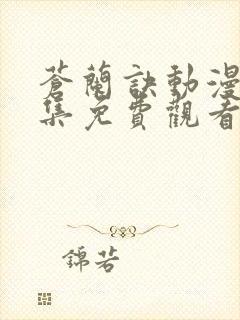 蒼蘭訣動漫
集免費觀看
錦若